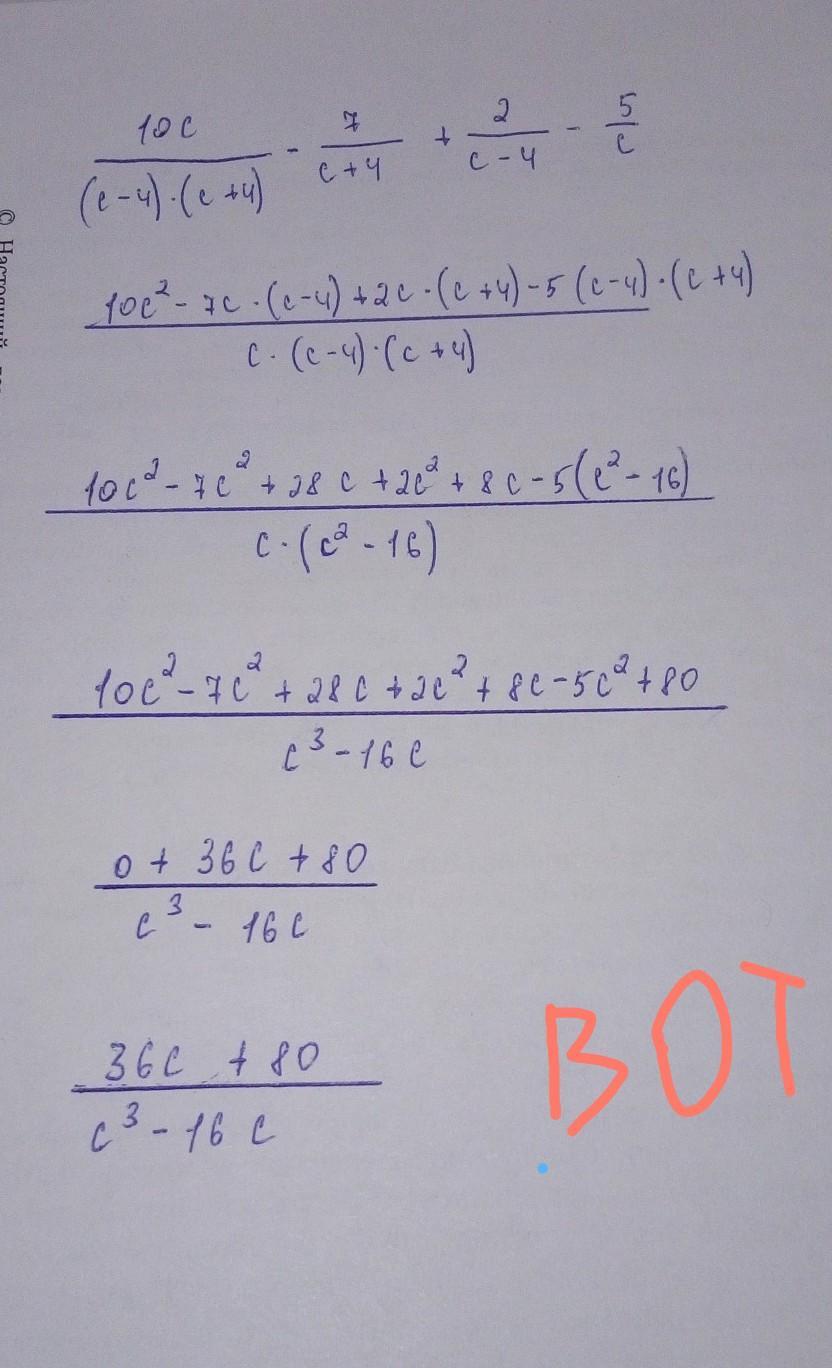 10c / (c-4)·(c+4) - 7 / c+4 + 2 / c-4 - 5 / c
10c² - 7c·(c-4) + 2c·(c+4) - 5(c-4)·(c+4)
c·(c-4)·(c+4)
10c² - 7c² + 28c + 2c² + 8c - 5(c² - 16)
c·(c² - 16)
10c² - 7c² + 28c + 2c² + 8c - 5c² + 80
c³ - 16c
0 + 36c + 80
c³ - 16c
36c + 80
c³ - 16c
ВОТ